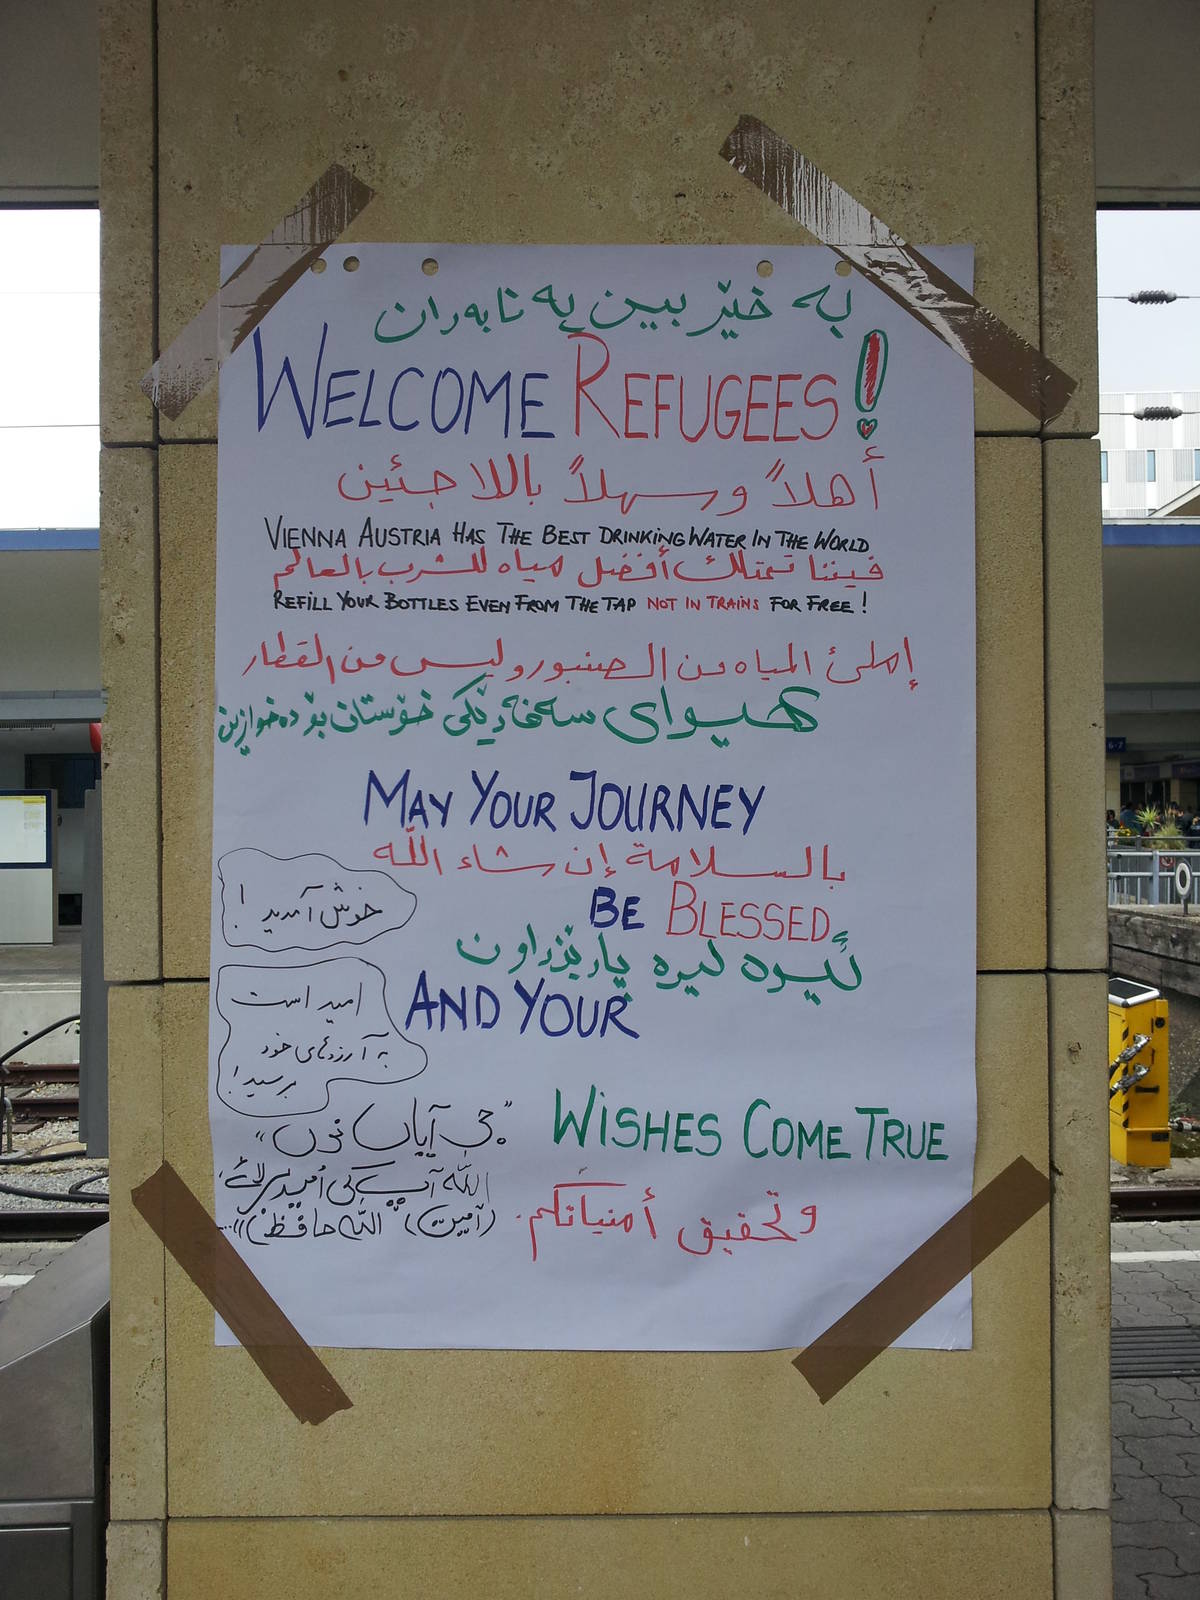 بە خێر بین پە نابەران
WELCOME REFUGEES!
أهلاً وسهلاً باللاجئين
VIENNA AUSTRIA HAS THE BEST DRINKING WATER IN THE WORLD
فيننا تمتلك أفضل مياه للشرب بالعالم
REFILL YOUR BOTTLES EVEN FROM THE TAP NOT IN TRAINS FOR FREE!
إملئ المياه من الصنبور وليس من القطار
هیوای سەفەرێکی خۆستان بۆ دەخوازین
MAY YOUR JOURNEY
بالسلامة إن شاء اللّه
خوش آمدید!
BE BLESSED
ئیوە لیرە پارێزراون
AND YOUR
امید است
به آرزوهای خود
برسید!
WISHES COME TRUE
"جی آیاں نوں"
اللّٰہ آپ کی اُمید بر لائے،
(آمین) "اللّٰہ حافظ"
وتحقيق أمنياتكم.
6-7